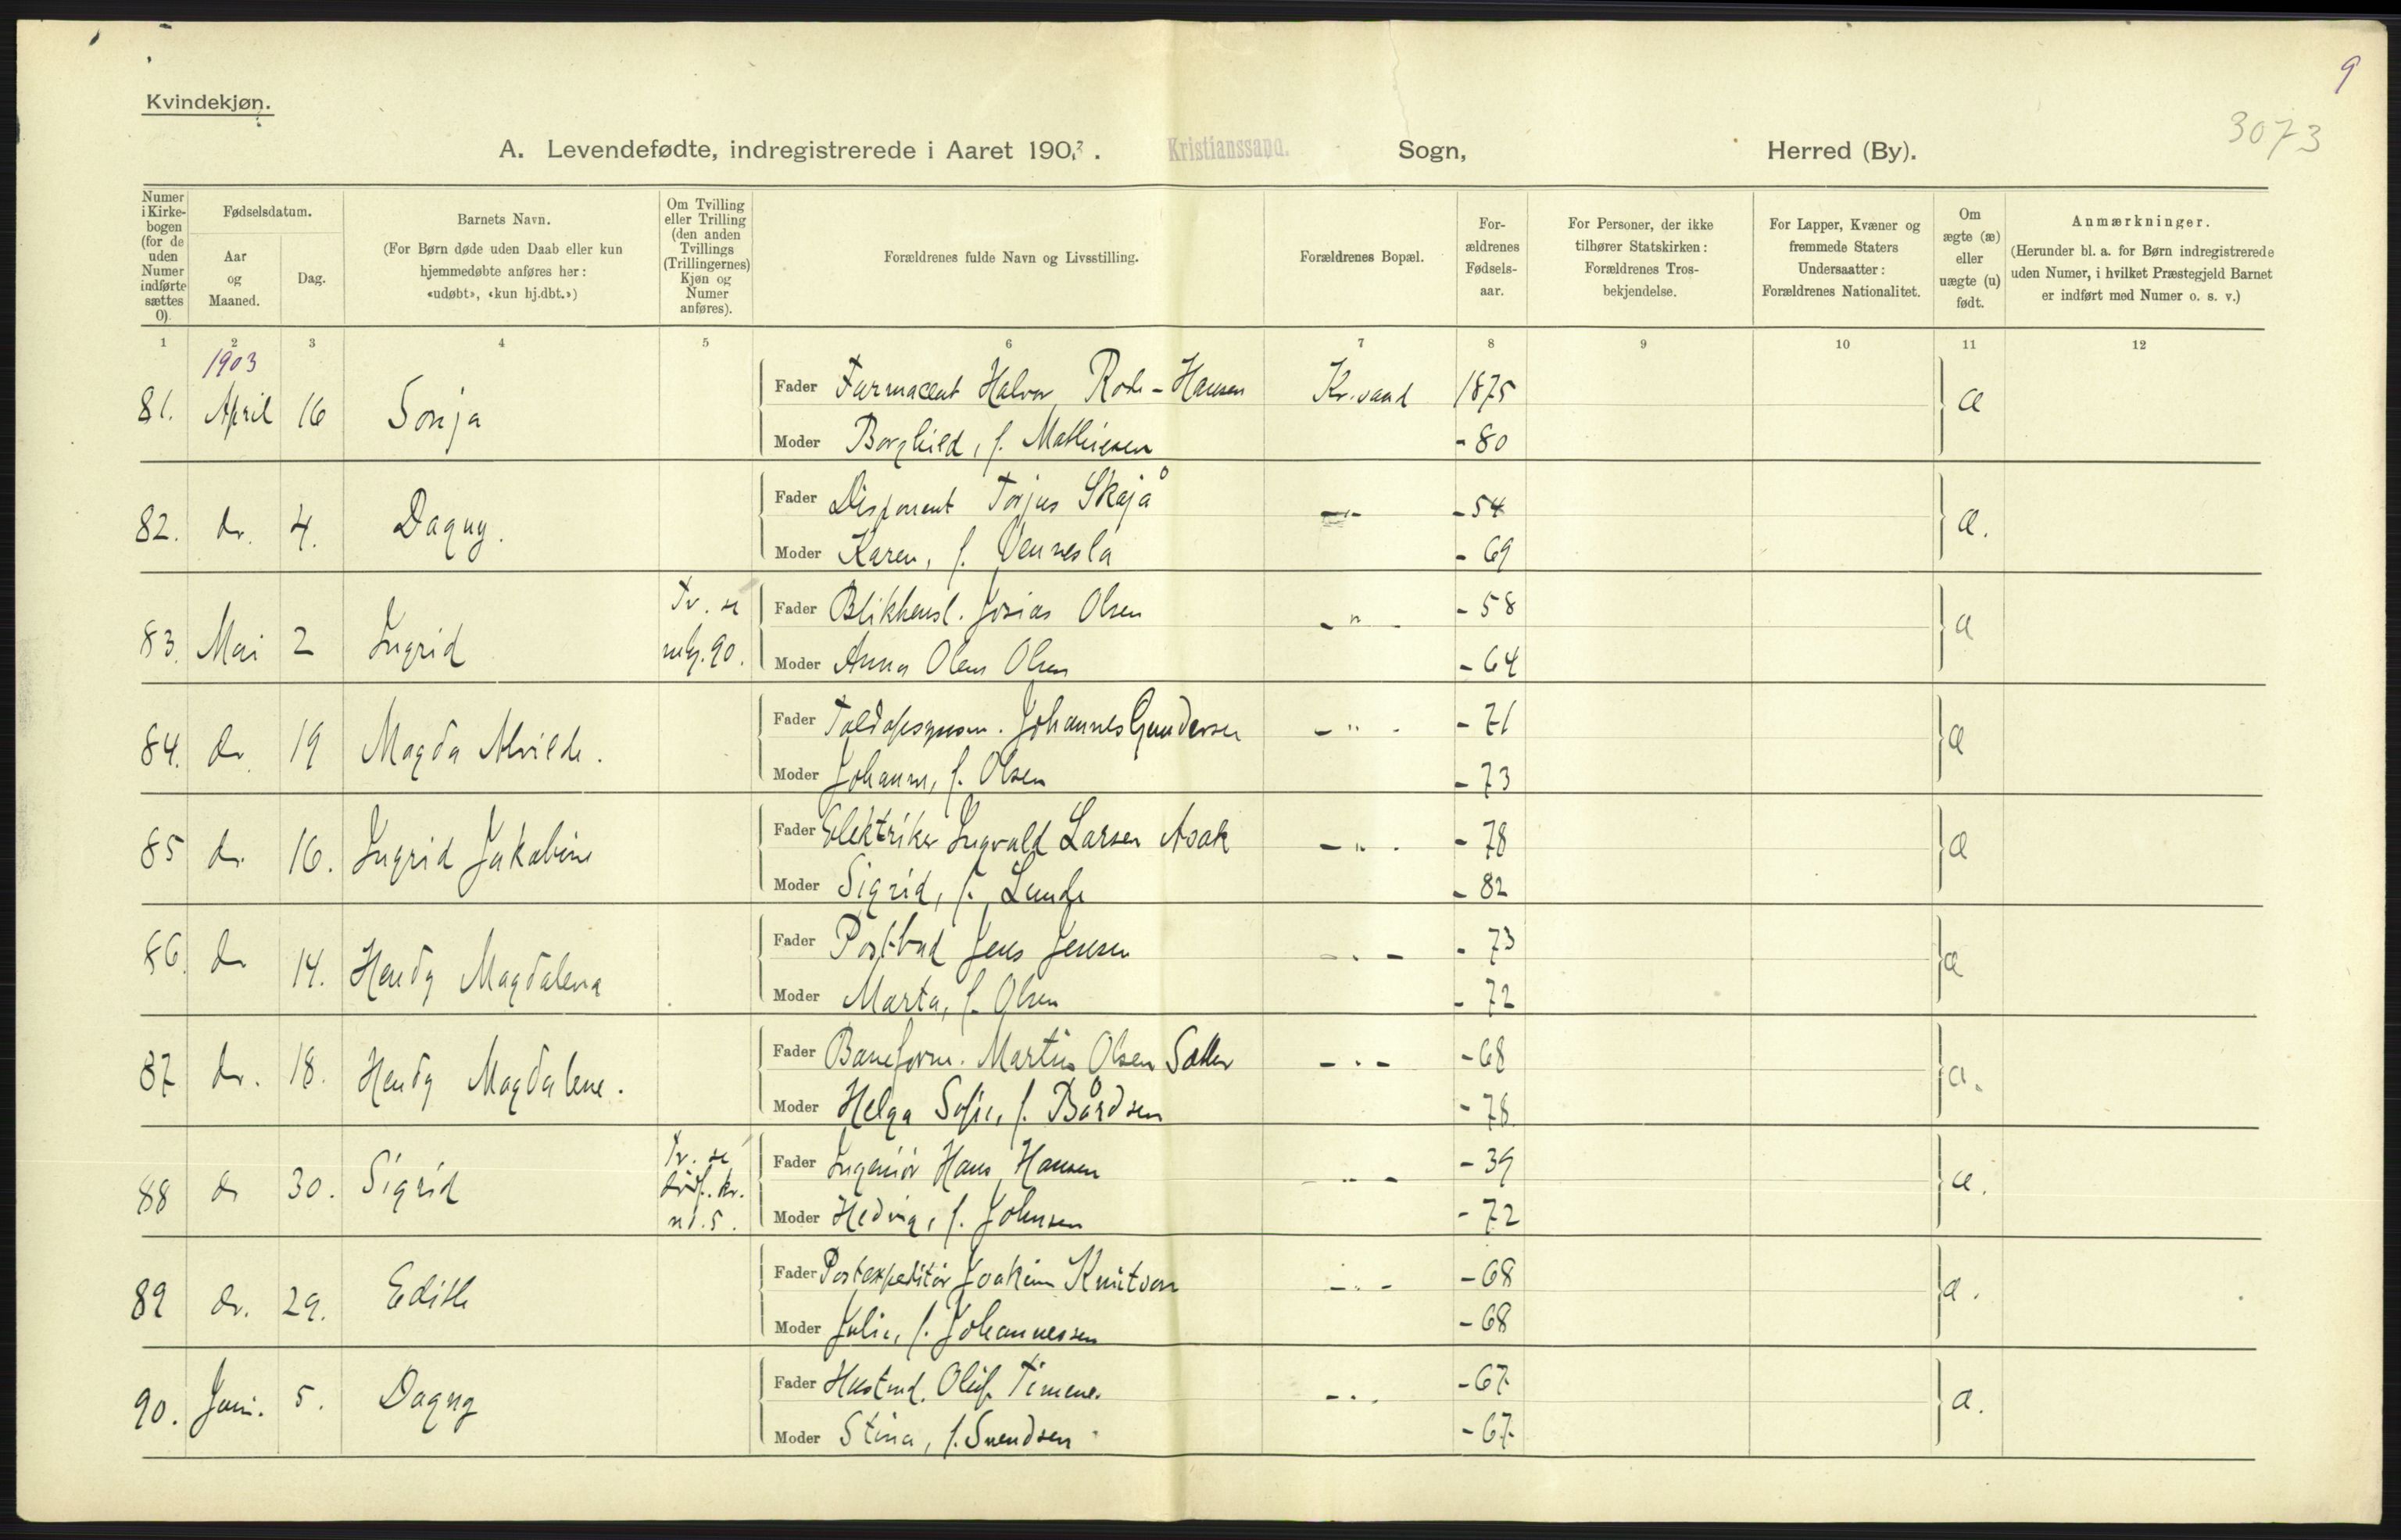 9
Kvindekjøn.
3073
A. Levendefødte, indregistrerede i Aaret 1903. Kristianssand. Sogn, Herred (By).
Numer i Kirkebogen (for de uden Numer indførte sættes 0).
Fødselsdatum.
Aar og Maaned.
Dag.
Barnets Navn.
(For Børn døde uden Daab eller kun hjemmedøbte anføres her: «udøbt», «kun hj.dbt.»)
Om Tvilling eller Trilling (den anden Tvillings (Trillingernes) Kjøn og Numer anføres).
Forældrenes fulde Navn og Livsstilling.
Forældrenes Bopæl.
Forældrenes Fødselsaar.
For Personer, der ikke tilhører Statskirken: Forældrenes Trosbekjendelse.
For Lapper, Kvæner og fremmede Staters Undersaatter: Forældrenes Nationalitet.
Om ægte (æ) eller uægte (u) født.
Anmærkninger.
(Herunder bl. a. for Børn indregistrerede uden Numer, i hvilket Præstegjeld Barnet er indført med Numer o. s. v.)
1 2 3 4 5 6 7 8 9 10 11 12
1903
81. April 16 Sonja Fader Farmaceut Halvor Rode-Hansen Kr.sand 1875 æ
Moder Borghild, f. Mathiesen - 80
82. do. 4. Dagny. Fader Disponent Torjus Skajå - " - - 54 æ.
Moder Karen, f. Vennesla - 69
83. Mai 2 Ingrid Tv. se Fader Blikkensl. Josias Olsen - " - - 58 æ
mkj. 90. Moder Anna Olena Olsen - 64
84. do. 19 Magda Alvilde. Fader Toldopsynsm. Johannes Gundersen - " - - 71 æ
Moder Johanne, f. Olsen - 73
85 do. 16. Ingrid Jakobine Fader Elektriker Ingvald Larsen Asak - " - - 78 æ
Moder Sigrid, f. Lunde - 82
86. do 14. Hendy Magdalena Fader Postbud Jens Jensen - " - - 73 æ
Moder Marta, f. Olsen - 72
87 do. 18. Hendy Magdalene. Fader Baneform. Martin Olsen Sæther - " - - 68 æ.
Moder Helga Sofie, f. Bårdsen - 78
88 do 30. Sigrid Tv. se Fader Ingeniør Hans Hansen - " - - 39 æ.
dødf. kv.
no. 5. Moder Hedvig, f. Johnsen - 72
89 do. 29. Edith Fader Postexpeditør Joakim Knutson - " - - 68 æ.
Moder Julie, f. Johannessen - 68
90. Juni. 5. Dagny Fader Oluf Timene. - " - - 67 æ.
Moder Stina, f. Svendsen - 67